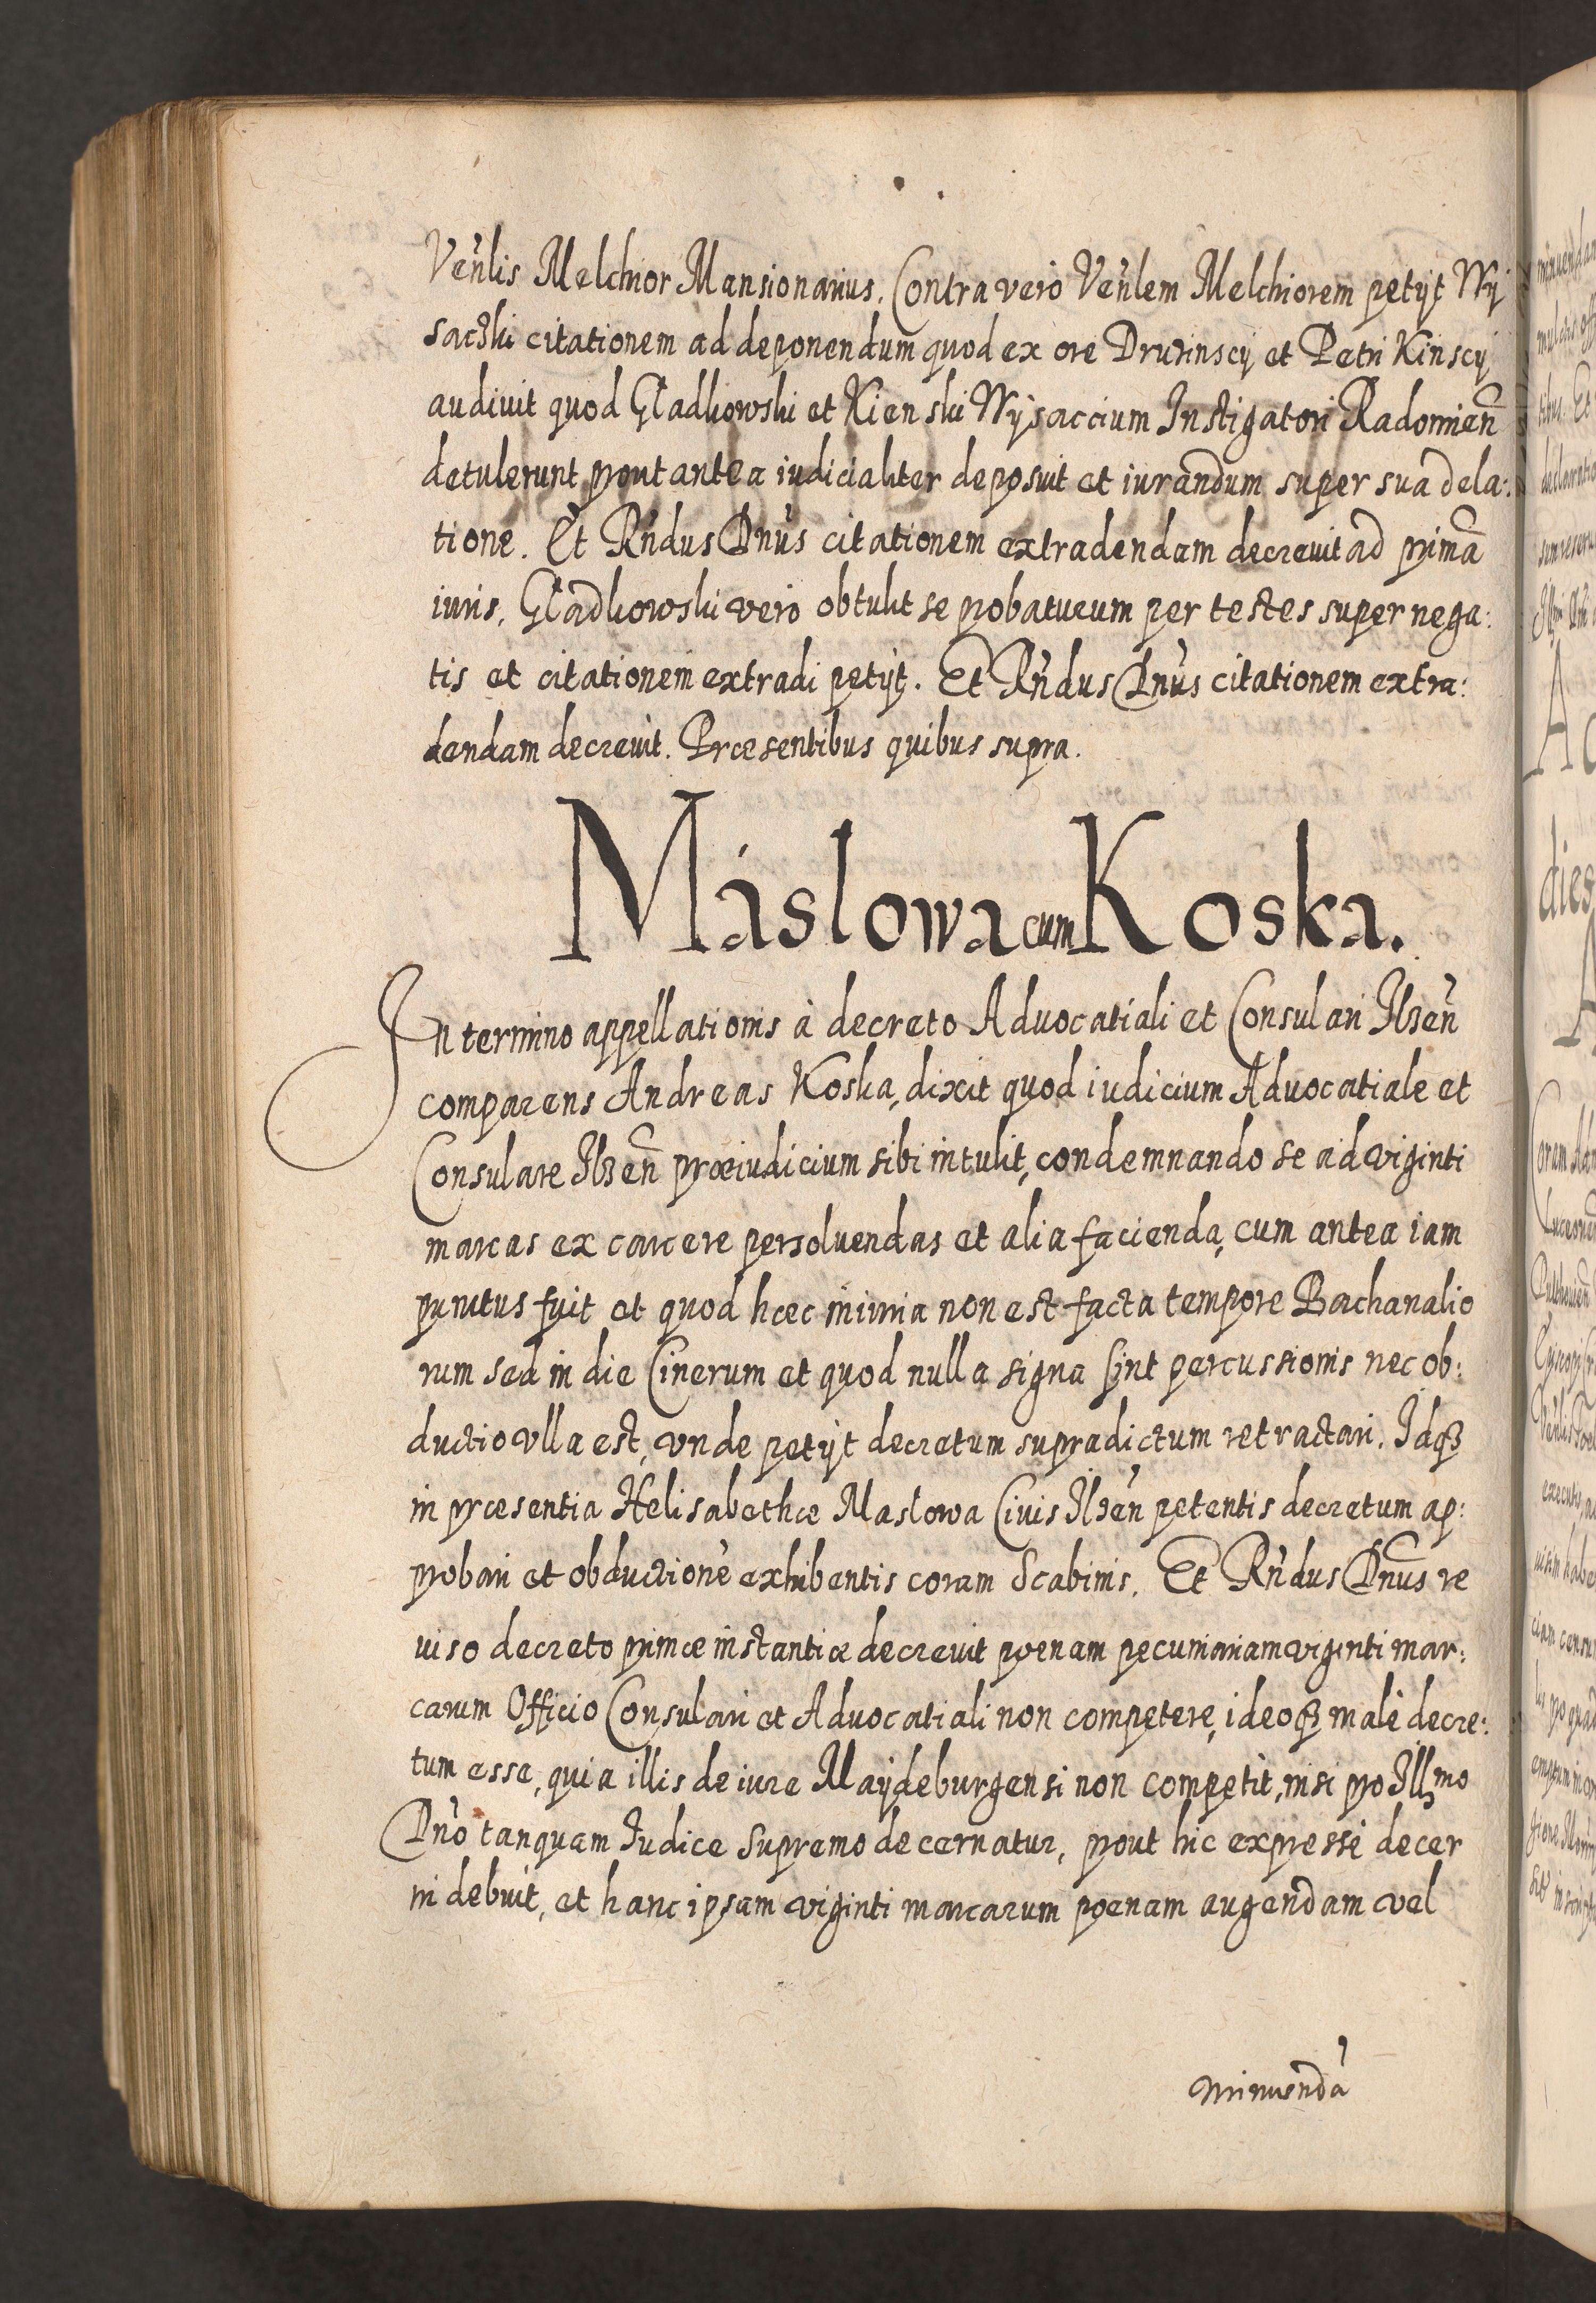 Ven̄lis Melchior Mansionarius. Contra vero Ven̄lem Melchiorem petijt Wÿ
sactzki citationem ad deponendum quod ex ore Druzinscÿ et Petri Kinscÿ
audiuit quod Gładkowski et Kienski Wÿsaccium Instigatori Radomien̄
detulerunt prout antea iudicialiter deposuit et iurandum super sua dela:
tione. Et Rn̄dus Dn̄us citationem extradendam decreuit ad primā
iuris. Gładkowski vero obtulit se probaturum per testes super nega:
tis et citationem extradi petijt. Et Rn̄dus Dn̄us citationem extra:
dendam decreuit. Præsentibus quibus supra.
Máslowa cum Koska.
In termino appellationis à decreto Aduocatiali et Consulari Ilzen̄
comparens Andreas Koska, dixit quod iudicium Aduocatiale et
Consulare Ilzen̄ præiudicium sibi intulit, condemnando se ad viginti
marcas ex carcere persoluendas et alia facienda, cum antea iam
punitus fuit et quod hæc iniuria non est facta tempore Bachanalio
rum sed in die Cinerum et quod nulla signa sint percussionis nec ob:
ductio vlla est, vnde petijt decretum supradictum retractari. Idqꝫ
in præsentia Helisabethæ Maslowa Ciuis Ilzen̄ petentis decretum ap:
probari et obductionē exhibentis coram Scabinis. Et Rn̄dus Dn̄us re
uiso decreto primæ instantiæ decreuit poenam pecuniariam viginti mar:
carum Officio Consulari et Aduocatiali non competere, ideoqꝫ malè decre:
tum esse, quia illis de iure Maÿdeburgensi non competit, nisi pro Illmo
Dn̄o tanquam Iudice Supremo decernatur, prout hic expressè decer
ni debuit, et hanc ipsam viginti marcarum poenam augendam vel
minuendā